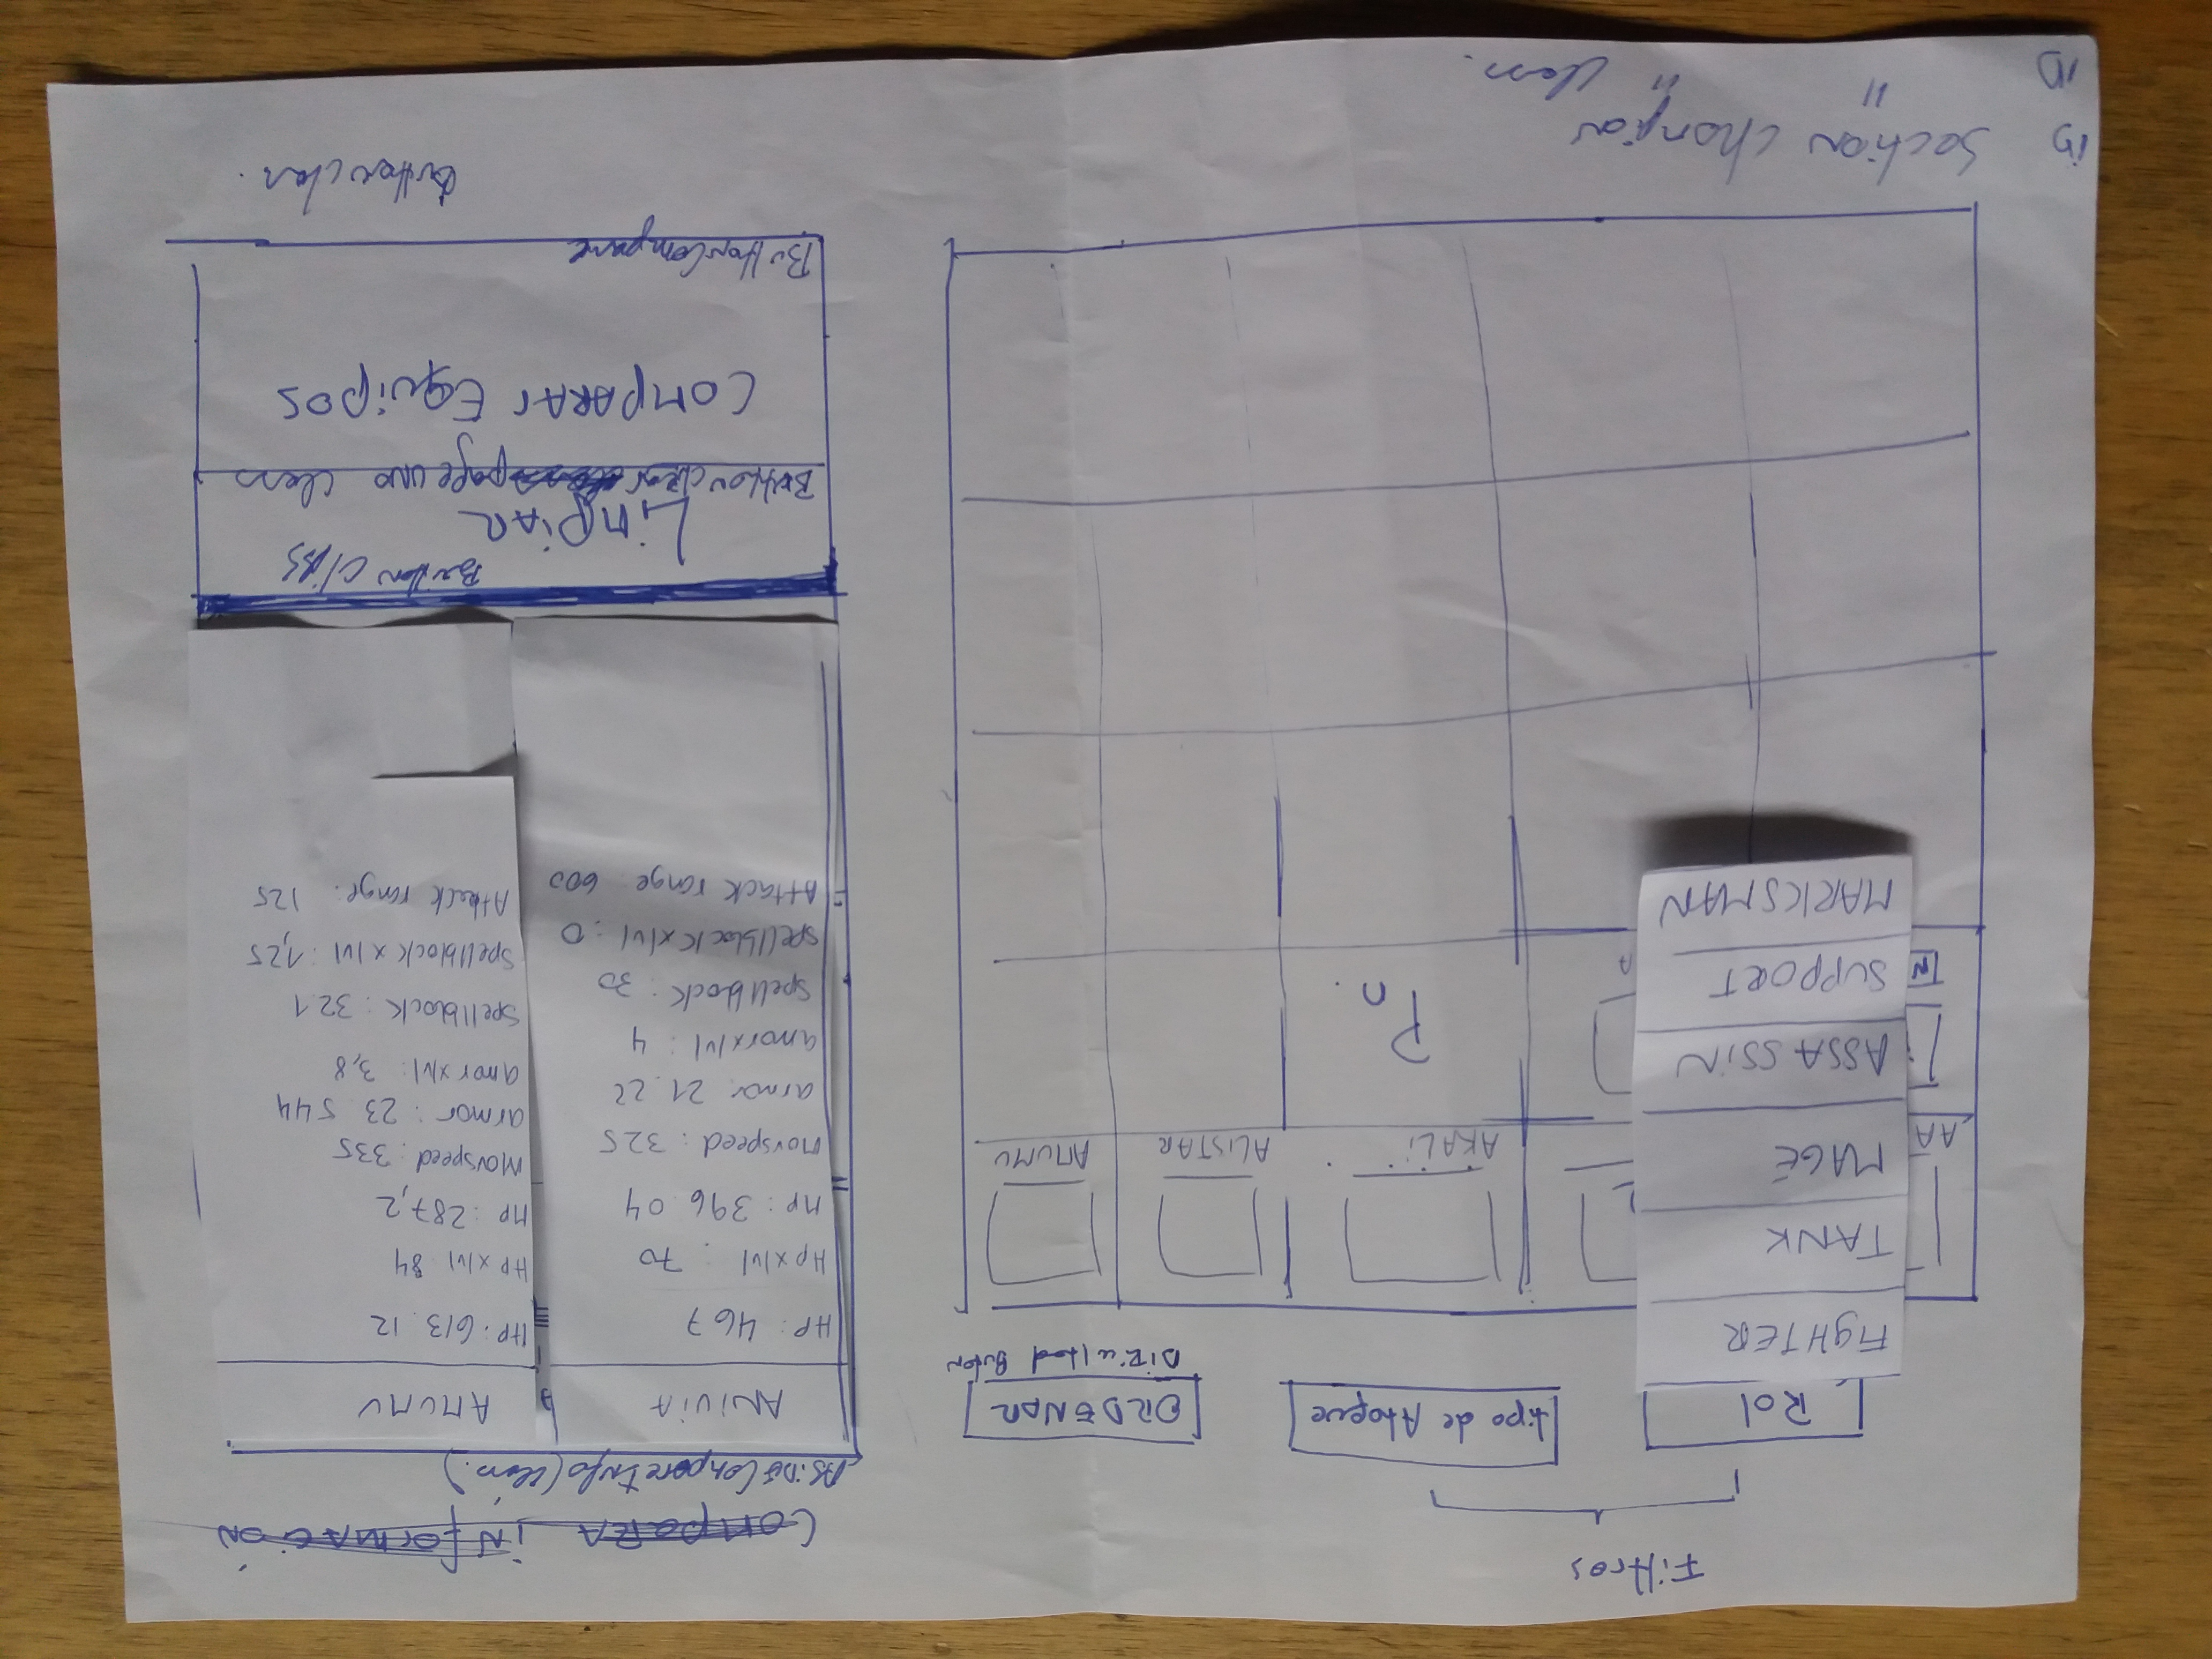 Filtros
Rol
tipo de Ataque
ORDENAR
Dificultad Buton
FigHTER
TANK
MAGE
ASSASSiN
SUPPORT
MARKSMAN
AA
AKALi
ALISTAR
AMUMU
N
A
Pn.
ComparA informaciÓN
ASiDE CompareInfo (Class.)
ANiViA
HP: 467
Hpxlvl : 70
Mp: 396.04
Movspeed: 325
armor 21.22
amorxlvl : 4
Spellblock: 30
spellblock xlvl: 0
Attack range 600
AMUMU
HP: 613.12
Hp xlvl 84
MP: 287,2
Movspeed: 335
armor: 23.544
amor xlvl: 3,8
Spellblock: 32.1
Spellblock xlvl: 1,25
Attack range. 125
Button class
LimpiAR
Button clear page uno class
COMPARAr EQuipos
ButtonCompare
Button clas.
iD Section champion
iD " " class.